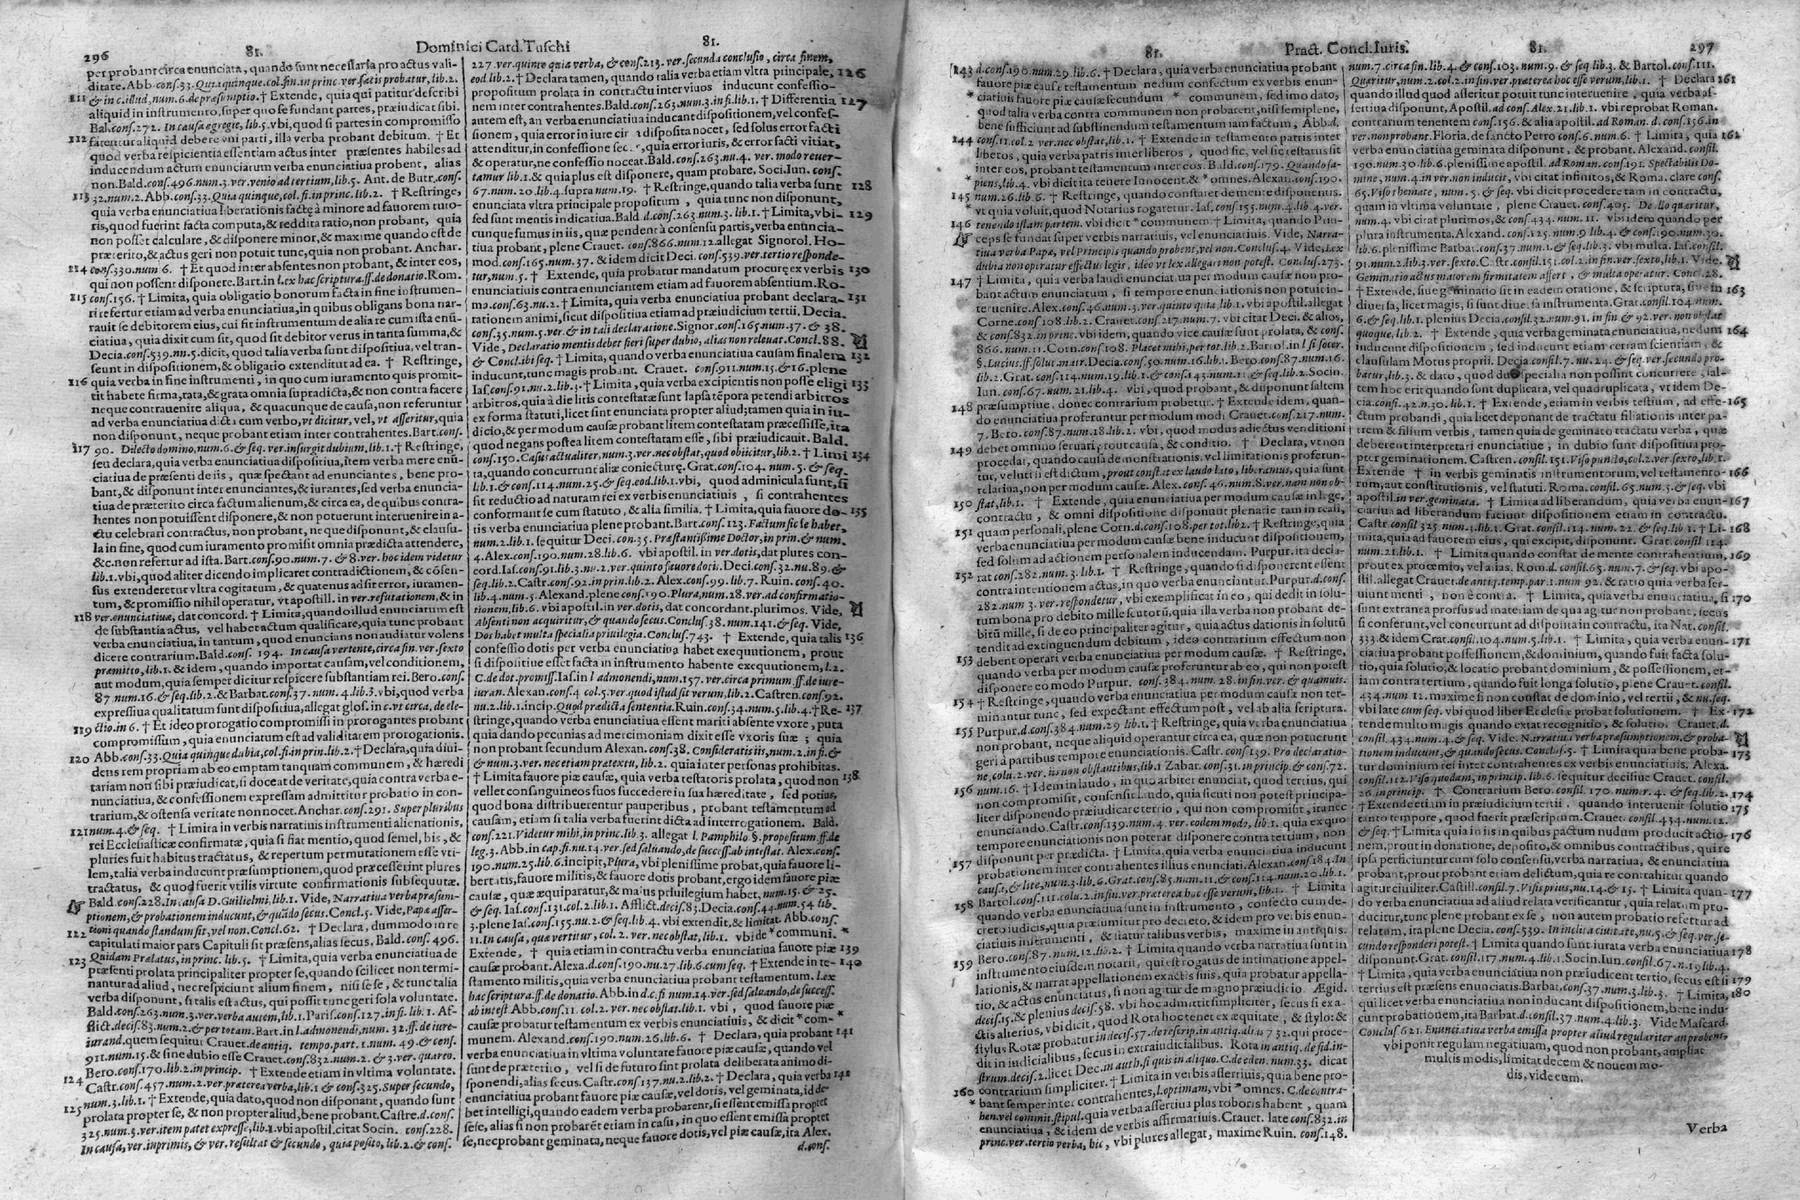 296 81. Dominici Card. Tuschi 81.
per probant circa enunciata, quando sunt necessaria pro actus vali-
ditate. Abb. cons. 33. Quia quinque. col. fin. in princ. ver. satis probatur, lib. 2.
111 & in c. illud, num. 6. de præsumptio. † Extende, quia qui patitur describi
aliquid in instrumento, super quo se fundant partes, præiudicat sibi.
Bal. cons. 272. In causa egregie, lib. 5. vbi, quod si partes in compromisso
112 fatentur aliquid debere vni parti, illa verba probant debitum. † Et
quod verba respicientia essentiam actus inter præsentes habiles ad
inducendum actum enunciatum verba enunciatiua probent, alias
non. Bald. cons. 496. num. 3. ver. venio ad tertium, lib. 5. Ant. de Butr. cons.
113 32. num. 2. Abb. cons. 33. Quia quinque, col. fi. in princ. lib. 2. † Restringe,
quia verba enunciatiua liberationis factę à minore ad fauorem tuto-
ris, quod fuerint facta computa, & reddita ratio, non probant, quia
non posset calculare, & disponere minor, & maxime quando est de
præterito, & actus geri non potuit tunc, quia non probant. Anchar.
114 cons. 330. num 6. † Et quod inter absentes non probant, & inter eos,
qui non possent disponere. Bart. in l. ex hac scriptura. ff. de donatio. Rom.
115 cons. 156. † Limita, quia obligatio bonorum facta in fine instrumen-
ti refertur etiam ad verba enunciatiua, in quibus obligans bona nar-
rauit se debitorem eius, cui fit instrumentum de alia re cum ista enū-
ciatiua, quia dixit cum sit, quod sit debitor verus in tanta summa, &
Decia. cons. 539. nu. 5. dicit, quod talia verba sunt dispositiua, vel tran-
seunt in dispositionem, & obligatio extenditur ad ea. † Restringe,
116 quia verba in fine instrumenti, in quo cum iuramento quis promit-
tit habere firma, rata, & grata omnia supradicta, & non contra facere
neque contrauenire aliqua, & quacunque de causa, non referuntur
ad verba enunciatiua dicta cum verbo, vt dicitur, vel, vt asseritur, quia
non disponunt, neque probant etiam inter contrahentes. Bart. cons.
117 90. Dilecto domino, num. 6. & seq. ver. insurgit dubium, lib. 1. † Restringe,
seu declara, quia verba enunciatiua dispositiua, item verba mere enū-
ciatiua de præsenti de iis, quæ spectant ad enunciantes, bene pro-
bant, & disponunt inter enunciantes, & iurantes, sed verba enuncia-
tiua de præterito circa factum alienum, & circa ea, de quibus contra-
hentes non potuissent disponere, & non potuerunt interuenire in a-
ctu celebrari contractus, non probant, neque disponunt, & clausu-
la in fine, quod cum iuramento promisit omnia prædicta attendere,
& c. non refertur ad ista. Bart. cons. 90. num. 7. & 8. ver. hoc idem videtur
lib. 1. vbi, quod aliter dicendo implicaret contradictionem, & cōsen-
sus extenderetur vltra cogitatum, & quatenus adsit error, iuramen-
tum, & promissio nihil operatur, vt apostill. in ver. refutationem, & in
118 ver. enunciatiuæ, dat concord. † Limita, quando illud enunciatum est
de substantia actus, vel habet actum qualificare, quia tunc probant
verba enunciatiua, in tantum, quod enuncians non audiatur volens
dicere contrarium. Bald. cons. 194. In causa vertente, circa fin. ver. sexto
præmitto, lib. 1. & idem, quando importat causam, vel conditionem,
aut modum, quia semper dicitur respicere substantiam rei. Bero. cons.
87. num. 16. & seq. lib. 2. & Barbat. cons. 37. num. 4. lib. 3. vbi, quod verba
expressiua qualitatum sunt dispositiua, allegat glos. in c. vt circa, de ele-
119 ctio. in 6. † Et ideo prorogatio compromissi in prorogantes probant
compromissum, quia enunciatum est ad validitatem prorogationis.
120 Abb. cons. 33. Quia quinque dubia, col. fi. in prin. lib. 2. † Declara, quia diui-
dens rem propriam ab eo emptam tanquam communem, & hæredi
tariam non sibi præiudicat, si doceat de veritate, quia contra verba e-
nunciatiua, & confessionem expressam admittitur probatio in con-
trarium, & ostensa veritate non nocet. Anchar. cons. 291. Super pluribus
121 num. 4. & seq. † Limita in verbis narratiuis instrumenti alienationis,
rei Ecclesiasticæ confirmatæ, quia si fiat mentio, quod semel, bis, &
pluries fuit habitus tractatus, & repertum permutationem esse vti-
lem, talia verba inducunt præsumptionem, quod præcesserint plures
tractatus, & quod fuerit vtilis virtute confirmationis subsequutæ.
Bald. cons. 228. In causa D. Guilielmi, lib. 1. Vide, Narratiua verba præsum-
ptionem, & probationem inducunt, & quādo secus. Concl. 5. Vide, Papæ asser-
tioni quando standum sit, vel non. Concl. 62. † Declara, dummodo in re
122 capitulati maior pars Capituli sit præsens, alias secus. Bald. cons. 496.
123 Quidam Prælatus, in princ. lib. 5. † Limita, quia verba enunciatiua de
præsenti prolata principaliter propter se, quando scilicet non termi-
nantur ad aliud, nec respiciunt alium finem, nisi se se, & tunc talia
verba disponunt, si talis est actus, qui possit tunc geri sola voluntate.
Bald. cons. 263. num. 3. ver. verba autem, lib. 1. Paris. cons. 127. in fi. lib. 1. Af-
flict. decis. 83. num. 2. & per totam. Bart. in l. admonendi, num. 32. ff. de iure-
iurand. quem sequitur Crauet. de antiq. tempo. part. 1. num. 49. & cons.
911. num. 15. & sine dubio esse Crauet. cons. 832. num. 2. & 3. ver. quæro.
Bero. cons. 170. lib. 2. in princip. † Extende etiam in vltima voluntate.
124 Castr. cons. 457. num. 2. ver. præterea verba, lib. 1. & cons. 325. Super secundo,
num. 3. lib. 1. † Extende, quia dato, quod non disponant, quando sunt
125 prolata propter se, & non propter aliud, bene probant. Castre. d. cons.
325. num. 5. ver. item patet expresse, lib. 1. vbi apostil. citat Socin. cons. 228.
In causa, ver. in primis, & ver. resultat & secundo, quia posito, lib. 2. & cons.
227. ver. quinto quia verba, & cons. 213. ver. secunda conclusio, circa finem,
eod. lib. 2. † Declara tamen, quando talia verba etiam vltra principale, 126
propositum prolata in contractu inter viuos inducunt confessio-
nem inter contrahentes. Bald. cons. 263. num. 3. in fi. lib. 1. † Differentia 127
autem est, an verba enunciatiua inducant dispositionem, vel confes-
sionem, quia error in iure circa disposita nocet, sed solus error facti
attenditur, in confessione secus, quia error iuris, & error facti vitiat,
& operatur, ne confessio noceat. Bald. cons. 263. nu. 4. ver. modo reuer-
tamur lib. 1. & quia plus est disponere, quam probare, Soci. Iun. cons.
67. num. 20. lib. 4. supra num. 19. † Restringe, quando talia verba sunt 128
enunciata vltra principale propositum, quia tunc non disponunt,
sed sunt mentis indicatiua. Bald. d. cons. 263. num. 3. lib. 1. † Limita, vbi- 129
cunque sumus in iis, quæ pendent à consensu partis, verba enuncia-
tiua probant, plene Crauet. cons. 866. num. 12. allegat Signorol. Ho-
mod. cons. 165. num. 37. & idem dicit Deci. cons. 539. ver. tertio responde-
tur, num. 5. † Extende, quia probatur mandatum procuręex verbis 130
enunciatiuis contra enunciantem etiam ad fauorem absentium. Ro-
ma. cons. 63. nu. 2. † Limita, quia verba enunciatiua probant declara- 131
rationem animi, sicut dispositiua etiam ad præiudicium tertii. Decia.
cons. 35. num. 5. ver. & in tali declaratione. Signor. cons. 165. num. 37. & 38.
Vide, Declaratio mentis debet fieri super dubio, alias non releuat. Concl. 88.
& Concl. ibi seq. † Limita, quando verba enunciatiua causam finalem 132
inducunt, tunc magis probant. Crauet. cons. 911. num. 15. & 16. plene
Ias. cons. 91. nu. 2. lib. 3. † Limita, quia verba excipientis non posse eligi 133
arbitros, quia à die litis contestatæ sunt lapsa tēpora petendi arbitros
ex forma statuti, licet sint enunciata propter aliud; tamen quia in iu-
dicio, & per modum causæ probant litem contestatam præcessisse, ita
quod negans postea litem contestatam esse, sibi præiudicauit. Bald.
cons. 150. Casus actualiter, num. 3. ver. nec obstat, quod obiicitur, lib. 2. † Limi 134
ta, quando concurrunt aliæ coniecturę. Grat. cons. 104. num. 5. & seq.
lib. 1. & cons. 114. num. 25. & seq. eod. lib. 1. vbi, quod adminicula sunt, si
sit reductio ad naturam rei ex verbis enunciatiuis, si contrahentes
conformant se cum statuto, & alia similia. † Limita, quia fauore do- 135
tis verba enunciatiua plene probant. Bart. cons. 123. Factum sic se habet,
num. 2. lib. 1. sequitur Deci. con. 35. Præstantissime Doctor, in prin. & num.
4. Alex. cons. 190. num. 28. lib. 6. vbi apostil. in ver. dotis, dat plures con-
cord. Ias. cons. 91. lib. 3. nu. 2. ver. quinto fauore doti. Deci. cons. 32. nu. 89. &
seq. lib. 2. Castr. cons. 92. in prin. lib. 2. Alex. cons. 99. lib. 7. Ruin. cons. 40.
lib. 4. num. 5. Alexand. plene cons. 190. Plura, num. 28. ver. ad confirmatio-
tionem, lib. 6. vbi apostil. in ver. dotis, dat concordant. plurimos. Vide,
Absenti non acquiritur, & quando secus. Conclus. 38. num. 141. & seq. Vide,
Dos habet multa specialia priuilegia. Conclus. 743. † Extende, quia talis 136
confessio dotis per verba enunciatiua habet exequutionem, prout
si dispositiue esset facta in instrumento habente exequutionem, l. 2.
C. de dot. promiss. Ias. in l. admonendi, num. 157. ver. circa primum. ff. de iure-
iuran. Alexan. cons. 4. col. 5. ver. quod istud sit verum, lib. 2. Castren. cons. 92.
nu. 2. lib. 1. incip. Quod prædicta sententia. Ruin. cons. 34. num. 5. lib. 4. † Re- 137
stringe, quando verba enunciatiua essent mariti absente vxore, puta
quia dando pecunias ad mercimoniam dixit esse vxoris suæ; quia
non probant secundum Alexan. cons. 38. Consideratis iis, num. 2. in fi. &
& num. 3. ver. nec etiam prætextu, lib. 2. quia inter personas prohibitas.
† Limita fauore piæ causæ, quia verba testatoris prolata, quod non 138
vellet consanguineos suos succedere in sua hæreditate, sed potius,
quod bona distribuerentur pauperibus, probant testamentum ad
causam, etiam si talia verba fuerint dicta ad interrogationem. Bald.
cons. 221. Videtur mihi, in princ. lib. 3. allegat l. Pamphilo §. propositum. ff. de
leg. 3. Abb. in cap. fi. nu. 14. ver. sed saluando, de success. ab intestat. Alex. cons.
190. num. 25. lib. 6. incipit, Plura, vbi plenissime probat, quia fauore li-
bertatis, fauore militis, & fauore dotis probant, ergo idem fauore piæ
causæ, quæ æquiparatur, & maius priuilegium habet, num. 15. & 25.
& seq. Ias. cons. 131. col. 2. lib. 1. Afflict. decis. 83. Decia. cons. 44. num. 54. lib.
3. plene Ias. cons. 155. nu. 2. & seq. lib. 4. vbi extendit, & limitat. Abb. cons.
11. In causa, quæ vertitur, col. 2. ver. nec obstat, lib. 1. vbi de * communi. *
Extende, † quia etiam in contractu verba enunciatiua fauore piæ 139
causæ probant. Alexa. d. cons. 190. nu. 27. lib. 6. cum seq. † Extende in te- 140
stamento militis, quia verba enunciatiua probant testamentum. Lex
hac scriptura. ff. de donatio. Abb. in d. c. fi. num. 14. ver. sed saluando, de success.
ab intest. Abb. cons. 11. col. 2. ver. nec obstat. lib. 1. vbi, quod fauore piæ
causæ probatur testamentum ex verbis enunciatiuis, & dicit * com- *
munem. Alexand. cons. 190. num. 26. lib. 6. † Declara, quia probant 141
verba enunciatiua in vltima voluntate fauore piæ causæ, quando vel
sunt de præterito, vel si de futuro sint prolata deliberate animo di-
sponendi, alias secus. Castr. cons. 137. nu. 2. lib. 2. † Declara, quia verba 142
enunciatiua probant fauore piæ causæ, vel dotis, vel geminata, id de-
bet intelligi, quando eadem verba probarent, si essent emissa propter
sese, alias si non probarēt etiam in casu, in quo essent emissa propter
sese, nec probant geminata, neque fauore dotis, vel piæ causæ, ita Alex.
d. cons.
81. Pract. Concl. Iuris. 81. 297
143 d. cons. 190. num. 29. lib. 6. † Declara, quia verba enunciatiua probant
fauore piæ causæ testamentum nedum confectum ex verbis enun-
* ciatiuis fauore piæ causæ secundum * communem, sed imo dato,
quod talia verba contra communem non probarent, nisi semiplene,
bene sufficiunt ad substinendum testamentum iam factum, Abb. d.
144 cons. 11. col. 2. ver. nec obstat, lib. 1. † Extende in testamento patris inter
liberos, quia verba patris inter liberos, quod sic, vel sic testati sunt
inter eos, probant testamentum inter eos. Bald. cons. 179. Quando sa-
* piens, lib. 4. vbi dicit ita tenere Innocent. & * omnes. Alexan. cons. 190.
145 num. 26. lib. 6. † Restringe, quando constaret de mente disponentis,
vt quia voluit, quod Notarius rogaretur. Ias. cons. 155. num. 4. lib. 4. ver.
146 * tenendo istam partem. vbi dicit * communem. † Limita, quando Prin-
ceps se fundat super verbis narratiuis, vel enunciatiuis. Vide, Narra-
tiua verba Papæ, vel Principis quando probent, vel non. Conclus. 4. Vide, Lex
dubia non operatur effectus legis, ideo vt lex allegari non potest. Conclus. 273.
147 † Limita, quia verba laudi enunciatiua per modum causæ non pro-
bant actum enunciatum, si tempore enunciationis non potuit in-
teruenire. Alex. cons. 46. num. 7. ver. quinto quia, lib. 1. vbi apostil. allegat
Corne. cons. 108. lib. 2. Crauet. cons. 217. num. 7. vbi citat Deci. & alios,
& cons. 832. in princ. vbi idem, quando vice causæ sunt prolata, & cons.
866. num. 11. Corn. cons. 108. Placet mihi, per tot. lib. 2. Bartol. in l. si socer.
§. Lucius. ff. solut. matr. Decia. cons. 30. num. 16. lib. 1. Bero. cons. 87. num. 16.
lib. 2. Grat. cons. 114. num. 19. lib. 1. & cons. 143. num. 11. & seq. lib. 2. Socin.
Iun. cons. 67. num. 21. lib. 4. vbi, quod probant, & disponunt saltem
148 præsumptiue, donec contrarium probetur. † Extende idem, quan-
do enunciatiua proferuntur per modum modi. Crauet. cons. 217. num.
7. Bero. cons. 87. num. 18. lib. 2. vbi, quod modus adiectus venditioni
149 debet omnino seruari, prout causa, & conditio. † Declara, vt non
procedat, quando causa demonstrationis, vel limitationis proferun-
tur, veluti si est dictum, prout constat ex laudo lato, liberamus, quia sunt
relatiua, non per modum causæ. Alex. cons. 46. num. 8. ver. nam non ob-
150 stat, lib. 1. † Extende, quia enunciatiua per modum causæ in lege,
contractu, & omni dispositione disponunt plenarie tam in reali,
151 quam personali, plene Corn. d. cons. 108. per tot. lib. 2. † Restringe, quia
verba enunciatiua per modum causæ bene inducunt dispositionem,
sed solum ad actionem personalem inducendam. Purpur. ita decla-
152 rat cons. 282. num. 3. lib. 1. † Restringe, quando si disponerent essent
contra intentionem actus, in quo verba enunciantur. Purpur. d. cons.
282. num. 3. ver. respondetur, vbi exemplificat in eo, qui dedit in solu-
tum bona pro debito mille scutorū, quia illa verba non probant de-
bitū mille, si de eo principaliter agitur, quia actus dationis in solutū
tendit ad extinguendum debitum, ideo contrarium effectum non
debent operari verba enunciatiua per modum causæ. † Restringe,
153 quando verba per modum causæ proferuntur ab eo, qui non potest
disponere eo modo. Purpur. cons. 384. num. 28. in fin. ver. & quamuis.
154 † Restringe, quando verba enunciatiua per modum causæ non ter-
minantur tunc, sed expectant effectum post, vel ab alia scriptura.
155 Purpur. d. cons. 384. num. 29. lib. 1. † Restringe, quia verba enunciatiua
non probant, neque aliquid operantur circa ea, quæ non potuerunt
geri à partibus tempore enunciationis. Castr. cons. 139. Pro declaratio-
ne, colu. 2. ver. iis non obstantibus, lib. 1. Zabar. cons. 31. in princip. & cons. 72.
156 num. 16. † Idem in laudo, in quo arbiter enunciat, quod tertius, qui
non compromisit, consensit laudo, quia sicuti non potest principa-
liter disponendo præiudicare tertio, qui non compromisit, ita nec
enunciando. Castr. cons. 139. num. 4. ver. eodem modo, lib. 1. quia ex quo
tempore enunciationis non poterat disponere contra tertium, non
disponunt per prædicta. † Limita, quia verba enunciatiua inducunt
157 probationem inter contrahentes illius enunciati. Alexan. cons. 184. In
causa, & lite, num. 3. lib. 6. Grat. cons. 85. num. 11. & cons. 114. num. 20. lib. 1.
Bartol. cons. 111. colu. 2. in fin. ver. præterea hoc esse verum, lib. 1. † Limita
158 quando verba enunciatiua sunt in instrumento, confecto cum de-
creto iudicis, quia præsumitur pro decreto, & idem pro verbis enun-
ciatiuis instrumenti, & statur talibus verbis, maxime in antiquis.
159 Bero. cons. 87. num. 12. lib. 2. † Limita quando verba narratiua sunt in
instrumento eiusdem notarii, qui est rogatus de intimatione appel-
lationis, & narrat appellationem ex actis suis, quia probatur appella-
tio, & actus enunciatus, si non agitur de magno præiudicio. Ægid.
decis. 15. & plenius decis. 58. vbi hoc admittit simpliciter, secus si ex a-
ctis alterius, vbi dicit, quod Rota hoc tenet ex æquitate, & stylo: &
stylus Rotæ probatur in decis. 57. de rescrip. in antiq. aliàs 732. qui proce-
dit in iudicialibus, secus in extraiudicialibus. Rota in antiq. de fid. in-
strum. decis. 2. licet Dec. in auth. si quis in aliquo. C. de eden. num. 33. dicat
160 contrarium simpliciter. † Limita in verbis assertiuis, quia bene pro-
* bant semper inter contrahentes, l. optimam, vbi * omnes. C. de contra-
hen. vel commit. stipul. quia verba assertiua plus roboris habent, quam
enunciatiua, & verba de verbis affirmatiuis. Crauet. late cons. 832. in
princ. ver. tertio verba, hic, vbi plures allegat, maxime Ruin. cons. 148.
num. 7. circa fin. lib. 4. & cons. 103. num. 9. & seq. lib. 3. & Bartol. cons. 111.
Quæritur, num. 2. col. 2. in fin. ver. præterea hoc esse verum, lib. 1. † Declara 161
quando illud quod asseritur potuit tunc interuenire, quia verba as-
sertiua disponunt, Apostil. ad cons. Alex. 21. lib. 1. vbi reprobat Roman.
contrarium tenentem cons. 156. & alia apostil. ad Roman. d. cons. 156. in
ver. non probant. Floria. de sancto Petro cons. 6. num. 6. † Limita, quia 162
verba enunciatiua geminata disponunt, & probant. Alexand. consil.
190. num. 30. lib. 6. plenissime apostil. ad Roman. cons. 191. Spectabilis Do-
mine, num. 4. in ver. non inducit, vbi citat infinitos, & Roma. clare cons.
65. Viso themate, num. 5. & seq. vbi dicit procedere tam in contractu,
quam in vltima voluntate, plene Crauet. cons. 405. De illo quæritur,
num. 4. vbi citat plurimos, & cons. 434. num. 11. vbi idem quando per
plura instrumenta. Alexand. cons. 125. num. 9. lib. 4. & cons. 190. num. 30.
lib. 6. plenissime Barbat. cons. 37. num. 1. & seq. lib. 3. vbi multa. Ias. consil.
91. num. 2. lib. 3. ver. sexto. Castr. consil. 151. col. 2. in fin. ver. sexto, lib. 1. Vide,
Geminatio actus maiorem firmitatem affert, & multa operatur. Conc. 28.
† Extende, siue geminatio sit in eadem oratione, & scriptura, siue in 163
diuersa, licet magis, si sunt diuersa instrumenta. Grat. consil. 104. num.
6. & seq. lib. 1. plenius Decia. consil. 32. num. 91. in fin. & 92. ver. non obstat
quoque, lib. 2. † Extende, quia verba geminata enunciatiua, nedum 164
inducunt dispositionem, sed inducunt etiam certam scientiam, &
clausulam Motus proprii. Decia consil. 7. nu. 24. & seq. ver. secundo pro-
batur, lib. 3. & dato, quod duo specialia non possint concurrere, sal-
tem hoc erit quando sunt duplicata, vel quadruplicata, vt idem De-
cia. consi. 42. n. 30. lib. 1. † Extende, etiam in verbis testium, ad effe- 165
ctum probandi, quia licet deponant de tractatu filiationis inter pa-
trem & filium verbis, tamen quia de geminato tractatu verba, quæ
deberent interpretari enunciatiue, in dubio sunt dispositiua pro-
pter geminationem. Castren. consil. 151. Viso puncto, col. 2. ver. sexto, lib. 1.
Extende † in verbis geminatis instrumentorum, vel testamento- 166
rum, aut constitutionis, vel statuti. Roma. consil. 65. num. 5. & seq. vbi
apostil. in ver. geminata. † Limita ad liberandum, quia verba enun- 167
ciatiua ad liberandum faciunt dispositionem etiam in contractu.
Castr. consil 325. num. 3. lib. 1. Grat. consil. 114. num. 22. & seq. lib. 1. † Li- 168
mita, quia ad fauorem eius, qui excipit, disponunt. Grat. consil. 114.
num. 21. lib. 1. † Limita quando constat de mente contrahentium, 169
prout ex proœmio, vel alias. Rom. d. consil. 65. num. 7. & seq. vbi apo-
stil. allegat Crauet. de antiq. temp. par. 1. num 92. & ratio quia verba ser-
uiunt menti, non è contra. † Limita, quia verba enunciatiua, si 170
sunt extranea prorsus ad materiam de qua agitur non probant, secus
si conferunt, vel concurrunt ad disposita in contractu, ita Nat. consil.
333. & idem Crat. consil. 104. num. 5. lib. 1. † Limita, quia verba enun- 171
ciatiua probant possessionem, & dominium, quando fuit facta solu-
tio, quia solutio, & locatio probant dominium, & possessionem, et-
iam contra tertium, quando fuit longa solutio, plene Crauet. consil.
434. num. 12. maxime si non constat de dominio, vel tertii, & nu. seq.
vbi late cum seq. vbi quod liber Ecclesiæ probat solutionem. † Ex- 172
tende multo magis quando extat recognitio, & solutio. Crauet. d.
consil. 434. num. 4. & seq. Vide. Narratiua verba præsumptionem, & proba-
tionem inducunt, & quando secus. Conclus. 5. † Limita quia bene proba- 173
tur dominium rei inter contrahentes ex verbis enunciatiuis. Alexa.
consil. 112. Viso quodam, in princip. lib. 6. sequitur decisiue Crauet. consil.
26. in princip. † Contrarium Bero. consil. 170. numer. 4. & seq. lib. 2. 174
† Extende etiam in præiudicium tertii, quando interuenit solutio 175
tanto tempore, quod fuerit præscriptum. Crauet. consil. 434. num. 12.
& seq. † Limita quia in iis in quibus pactum nudum producit actio- 176
nem, prout in donatione, deposito, & omnibus contractibus, qui re
ipsa perficiuntur cum solo consensu, verba narratiua, & enunciatiua
probant, prout probant etiam delictum, quia re contrahitur quando
agitur ciuiliter. Castill. consil. 7. Visis prius, nu. 14. & 15. † Limita quan- 177
do verba enunciatiua ad aliud relata verificantur, quia relatum pro-
ducitur, tunc plene probant ex se, non autem probatio refertur ad
relatum, ita plene Decia. cons. 539. In inclita ciuitate, nu. 5. & seq. ver. se-
cundo responderi potest. † Limita quando sunt iurata verba enunciatiua 178
disponunt. Grat. consil. 117. num. 4. lib. 1. Socin. Iun. consil. 67. n. 19. lib. 4.
† Limita, quia verba enunciatiua non præiudicent tertio, secus est si 179
tertius est præsens enunciatis. Barbat. cons. 37. num. 3. lib. 3. † Limita, 180
qui licet verba enunciatiua non inducant dispositionem, bene indu-
cunt probationem, ita Barbat. d. consil. 37. num. 4. lib. 3. Vide Mascard.
Conclus 621. Enunciatiua verba emissa propter aliud regulariter an probent,
vbi ponit regulam negatiuam, quod non probant, ampliat
multis modis, limitat decem & nouem mo-
dis, vide eum.
Verba